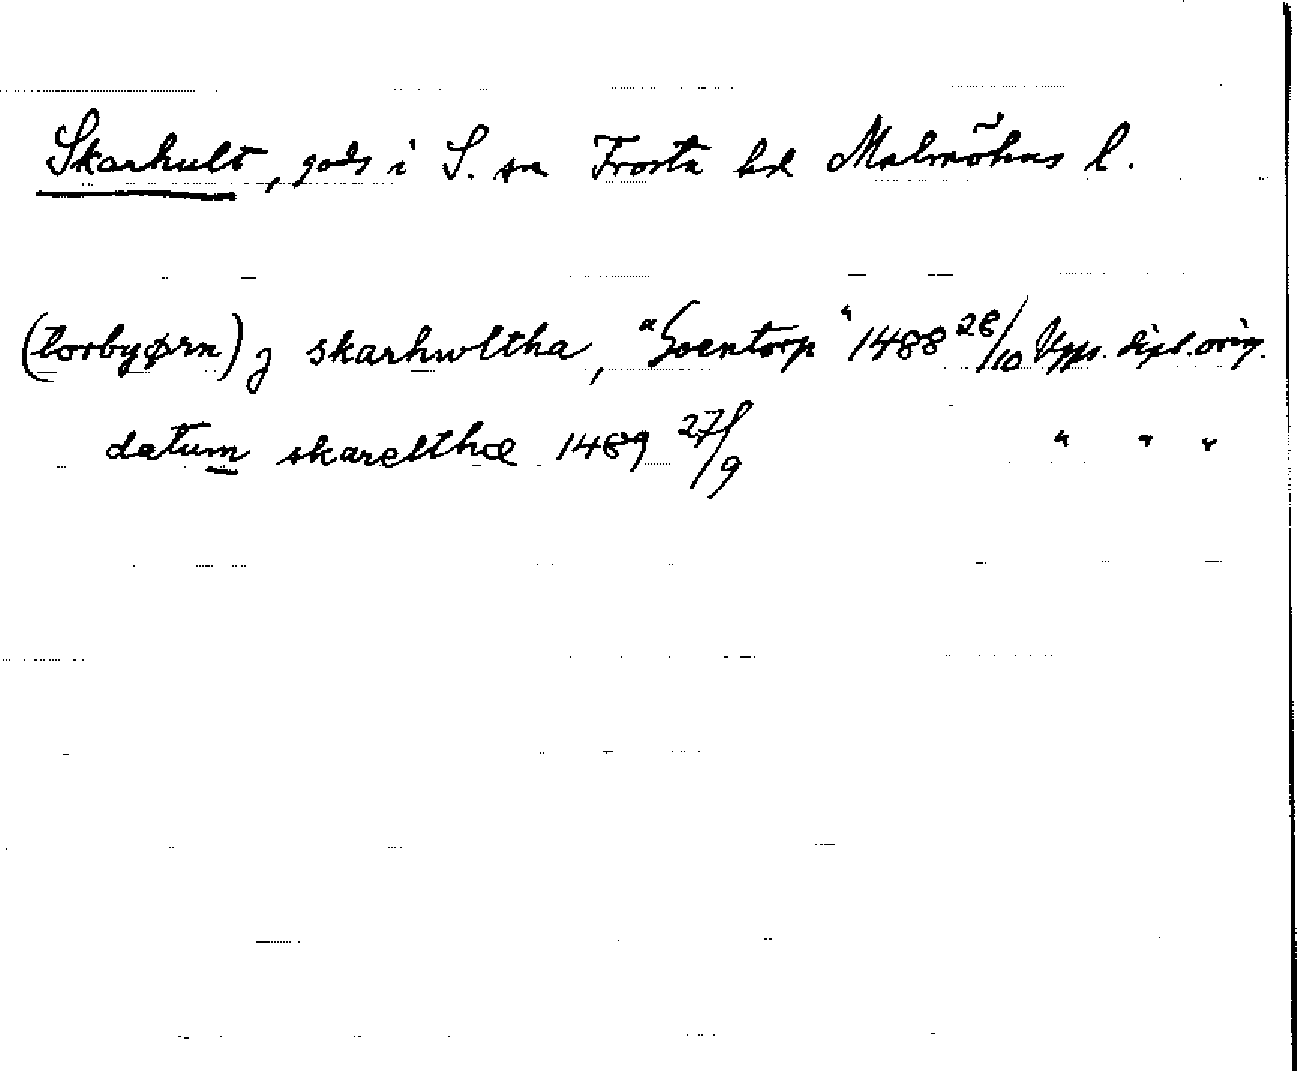 Skarhult, gods i S. sn Frosta hd Malmöhus l.
(torbyørn) j skarhwltha, "Soentorp" 1488 28/10 Upps. dipl. orig.
datum skarelthæ 1489 27/9 " " "